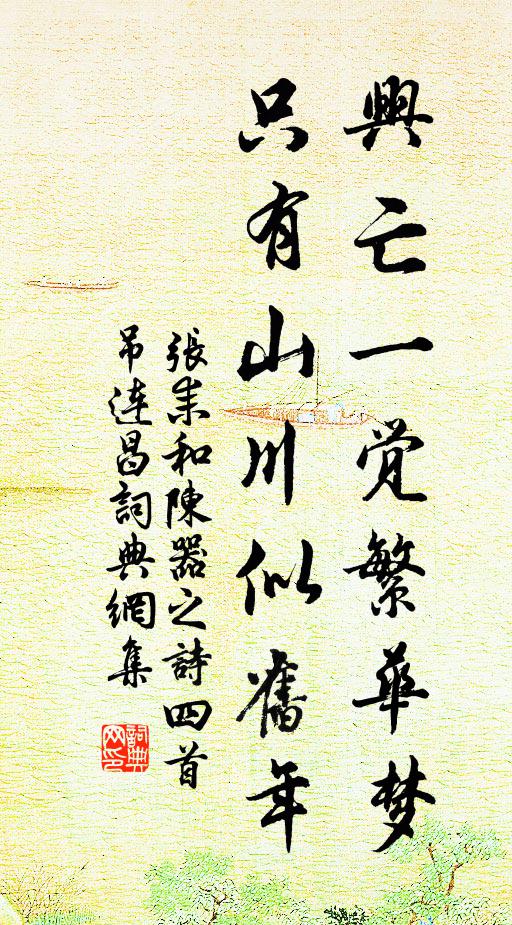 興亡一觉繁華梦
只有山川似舊年
張耒和陳器之詩四首
吊连昌詞典網集
詞典
网印